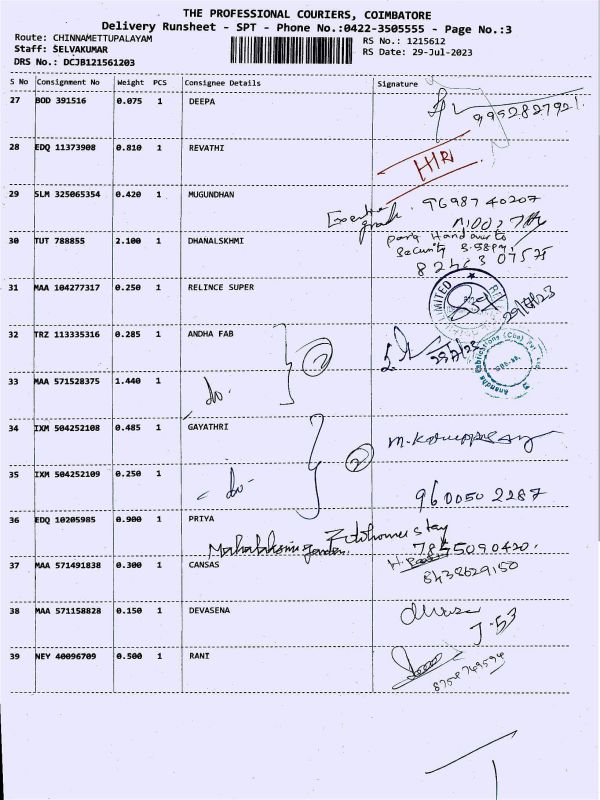 THE PROFESSIONAL COURIERS, COIMBATORE
Delivery Runsheet - SPT - Phone No.:0422-3505555 - Page No.:3
Route: CHINNAMETTUPALAYAM
RS No.: 1215612
Staff: SELVAKUMAR
RS Date: 29-Jul-2023
DRS No.: DCJB121561203
S No Consignment No Weight PCS Consignee Details Signature
27 BOD 391516 0.075 1 DEEPA
9952827921
28 EDQ 11373908 0.810 1 REVATHI
29 SLM 325065354 0.420 1 MUGUNDHAN
9698740207
30 TUT 788855 2.100 1 DHANALSKHMI
Security
31 MAA 104277317 0.250 1 RELINCE SUPER
LIMITED
32 TRZ 113335316 0.285 1 ANDHA FAB
2
33 MAA 571528375 1.440 1
do.
34 IXM 504252108 0.485 1 GAYATHRI
2
35 IXM 504252109 0.250 1
do.
9600502287
36 EDQ 10205985 0.900 1 PRIYA
7845090420.
37 MAA 571491838 0.300 1 CANSAS
8438629150
38 MAA 571158828 0.150 1 DEVASENA
J-53
39 NEY 40096709 0.500 1 RANI